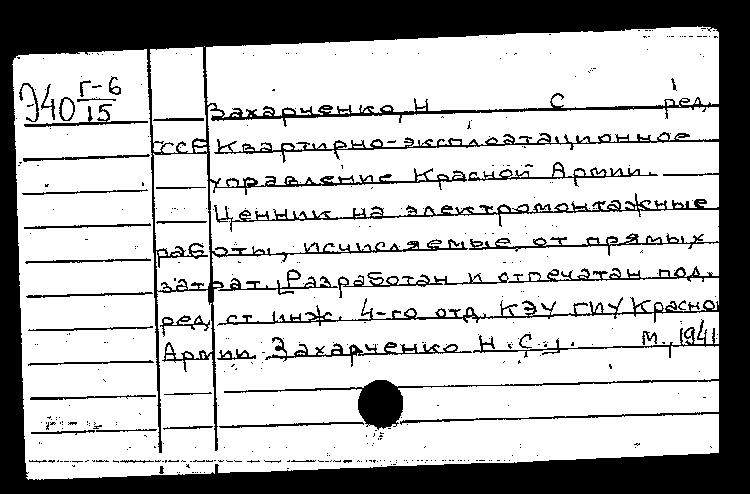 Э40 Г-6/15
Захарченко, Н С ред.
СССР Квартирно-эксплоатационное
управление Красной Армии.
Ценник на электромонтажные
работы, исчисляемые от прямых
затрат. [Разработан и отпечатан под.
ред. ст. инж. 4-го отд. КЭУ ГИУ Красно
Армии Захарченко Н.С.].   М., 1941